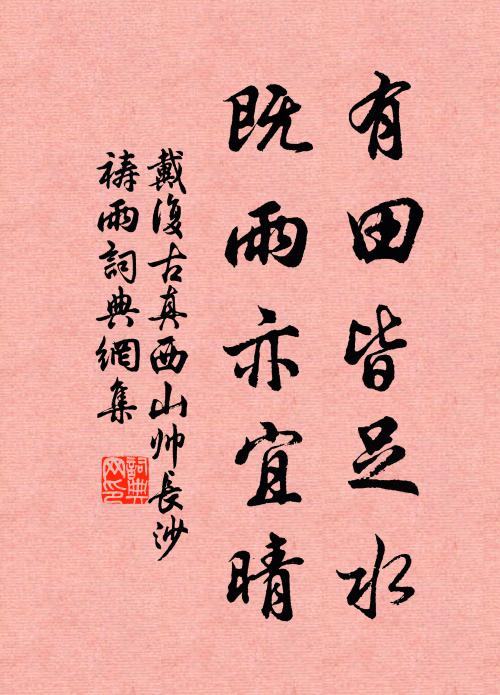 有田皆足水
既雨亦宜晴
戴復古真西山帅長沙
祷雨詞典網集
詞典網印